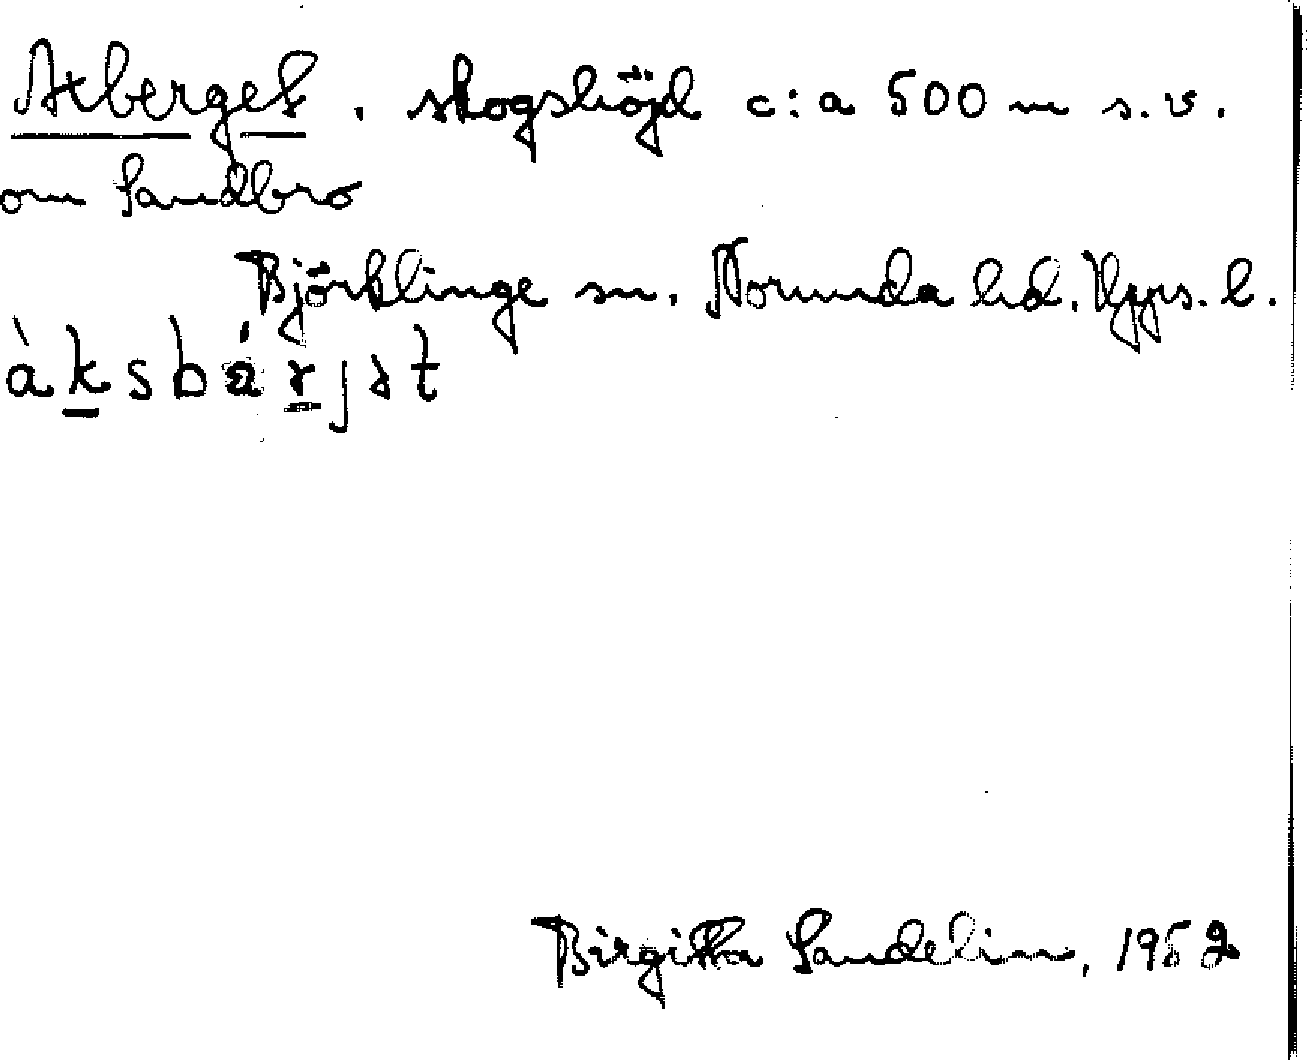 Axberget, skogshöjd c:a 500 m s.v.
om Sandbro
Björklinge sn. Norunda hd. Upps. l.
àksbárjət
Birgitta Sandelin, 1952